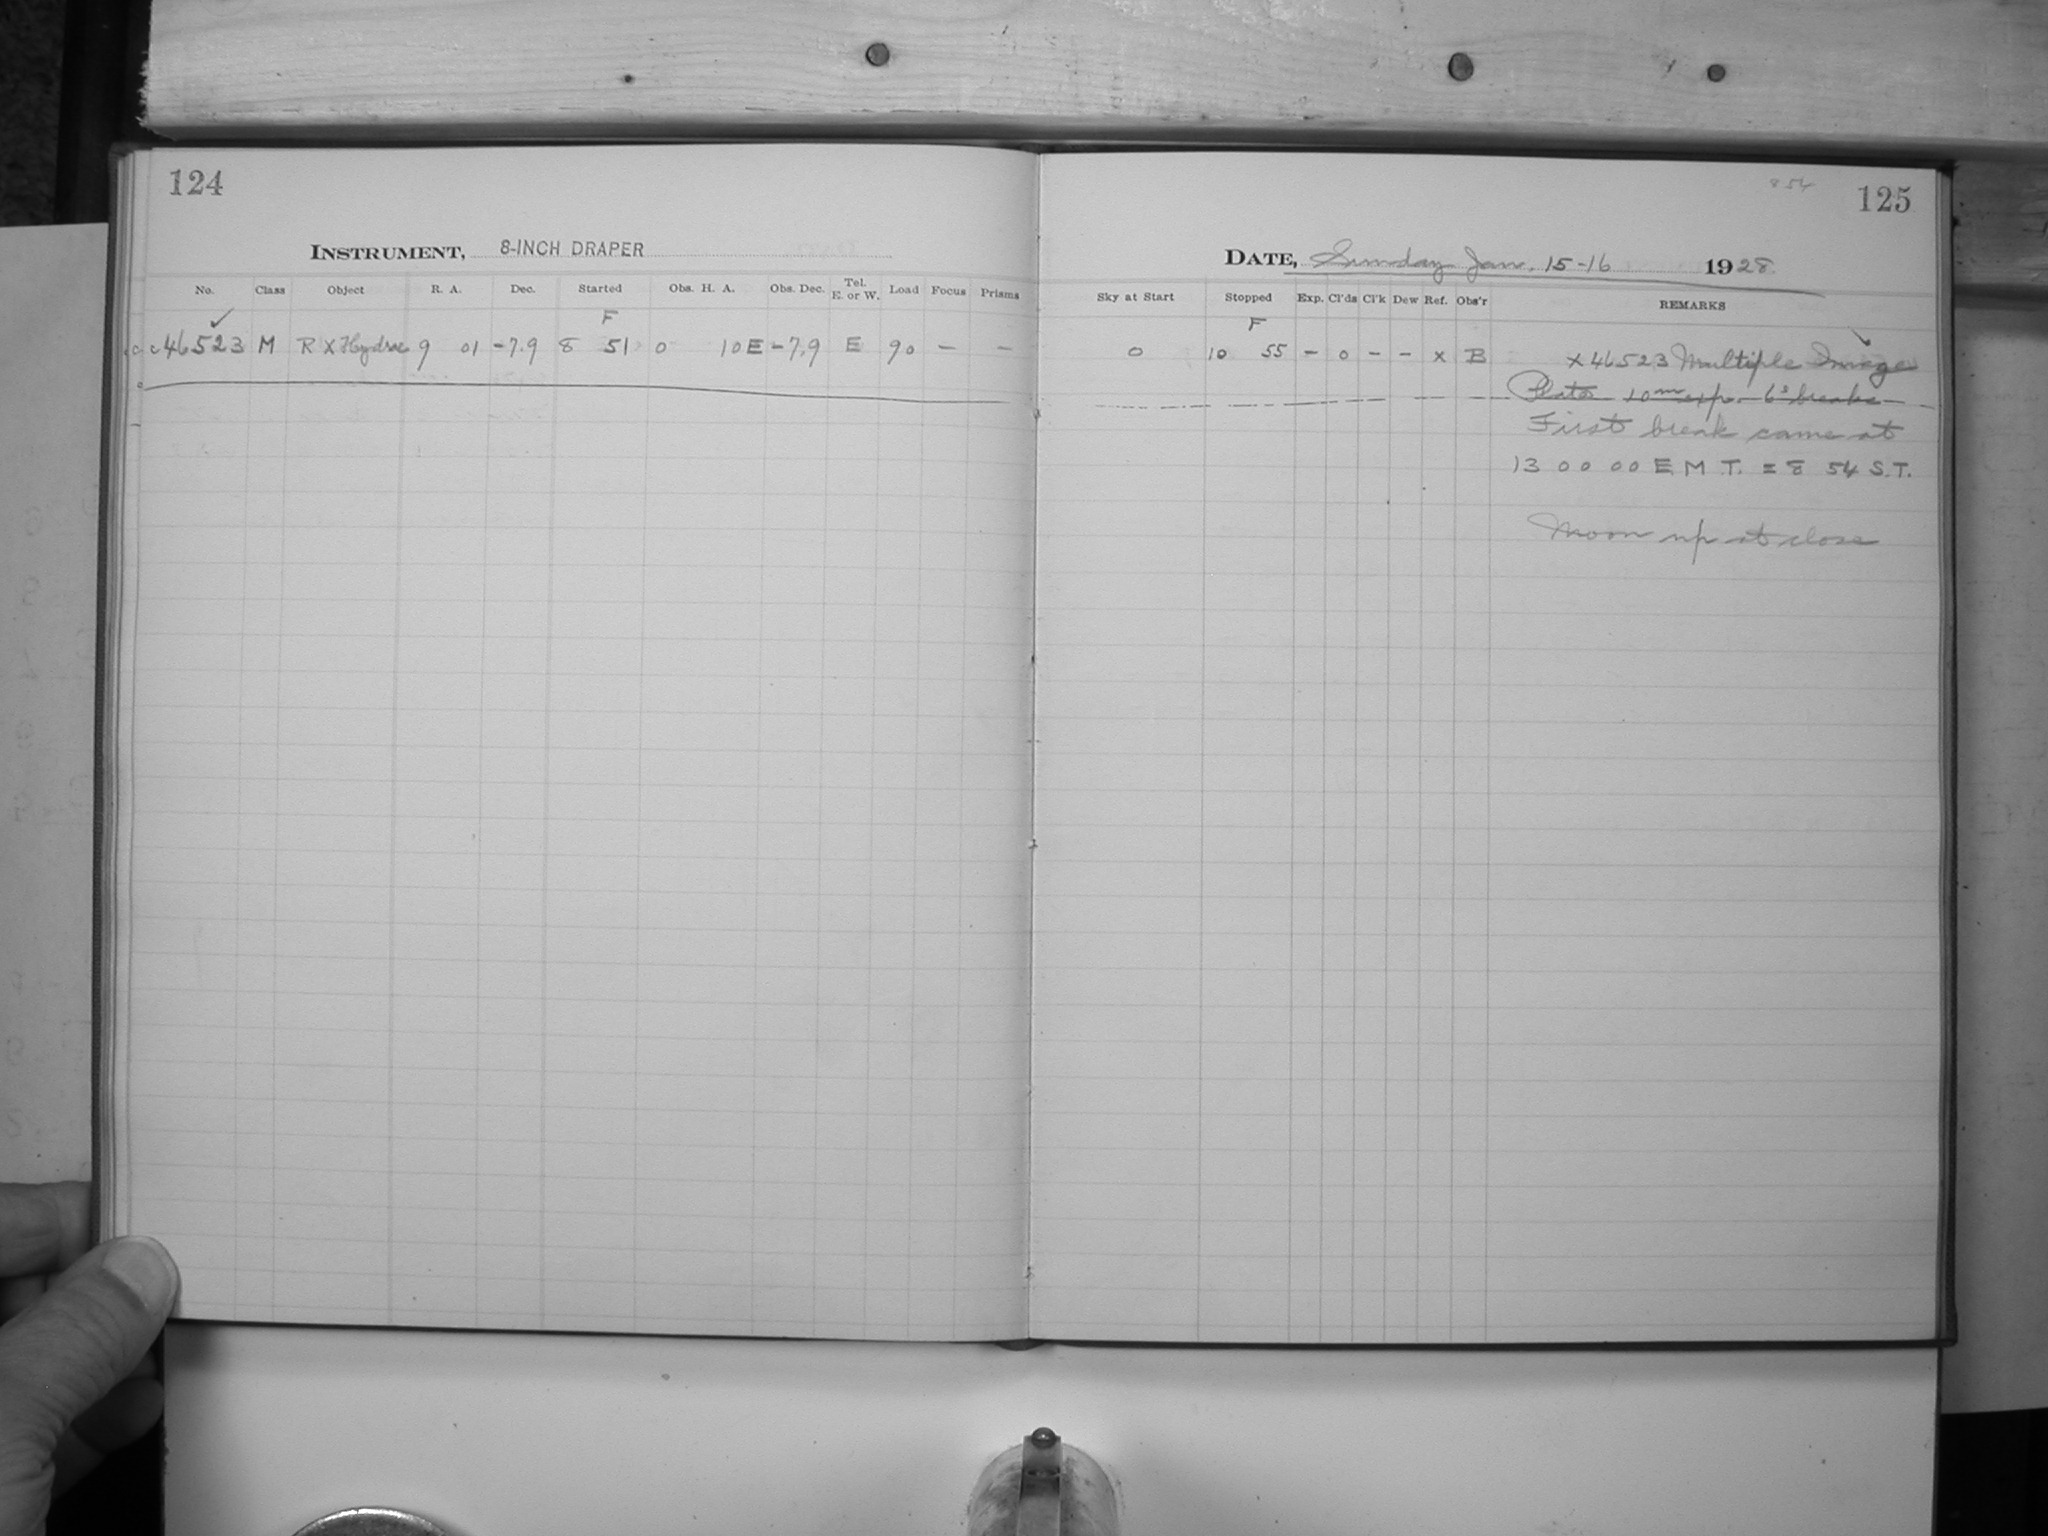 124
INSTRUMENT, 8-INCH DRAPER
No. Class Object R. A. Dec. Started Obs. H. A. Obs. Dec. Tel. E. or W. Load Focus Prisms
F
c 46523 M R X Hydrae 9 01 -7.9 8 51 0 10 E -7.9 E 90 - -
8 54
125
DATE, Sunday Jan. 15-16 1928
Sky at Start Stopped Exp. Cl'ds Cl'k Dew Ref. Obs'r REMARKS
F
0 10 55 - 0 - - x B x 46523 Multiple Image
Plate 10m exp. 6s breaks
First break came at
13 00 00 E.M.T. = 8 54 S.T.
Moon up at close